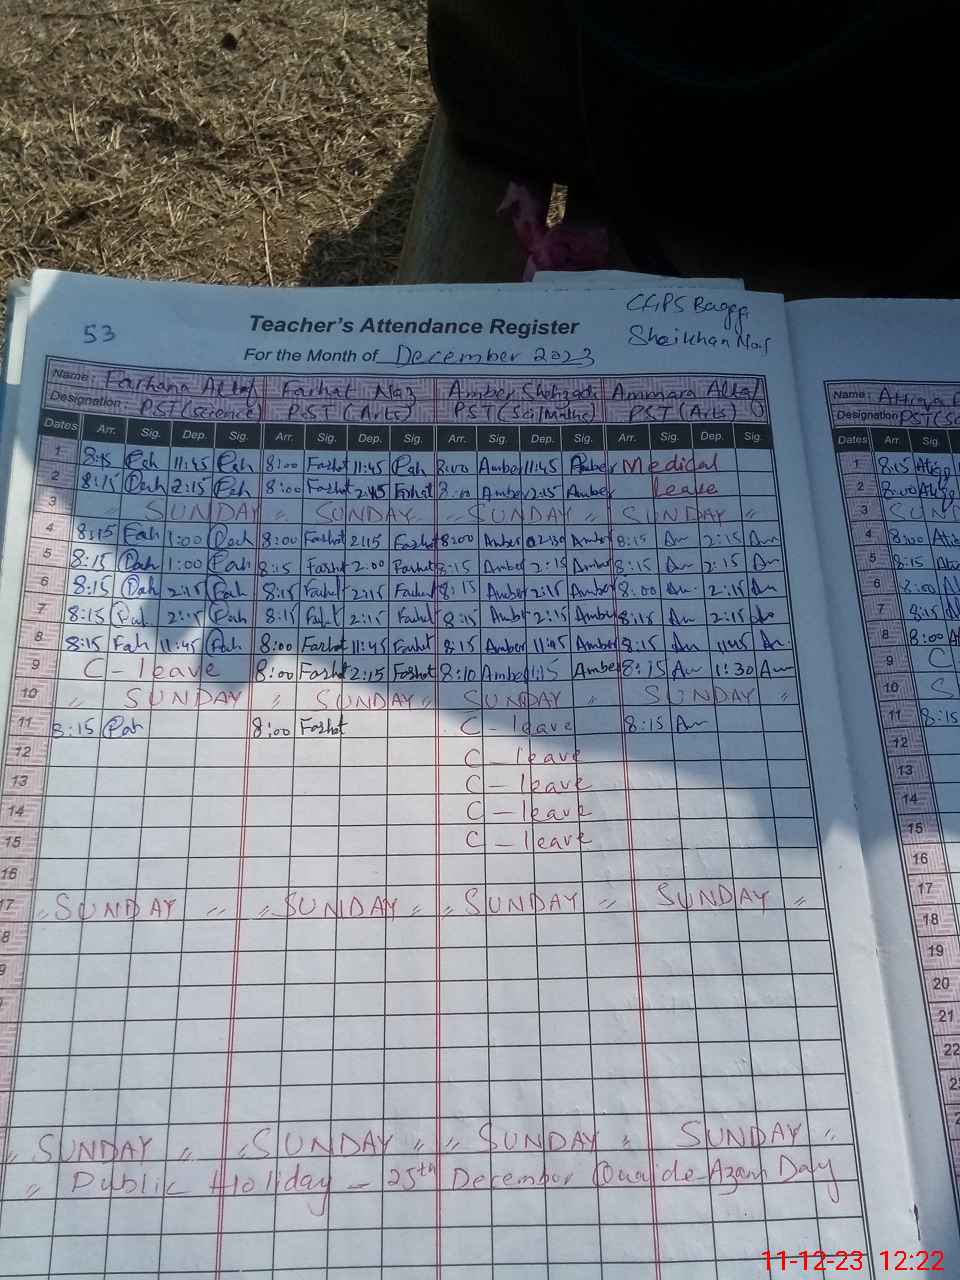 GGPS Bagga
53 Teacher's Attendance Register Sheikhan
For the Month of December 2023
Name: Farhana Altaf Farhat Naz Amber Shehzadi Ammara Altaf Name: Attiya
Designation: PST (Science) PST (Arts) PST (Sci/Maths) PST (Arts) Designation
Dates Arr. Sig. Dep. Sig. Arr. Sig. Dep. Sig. Arr. Sig. Dep. Sig. Arr. Sig. Dep. Sig. Dates Arr. Sig.
1 8:15 11:45 8:00 Farhat 11:45 8:00 Amber 11:45 Amber Medical 1 8:15
2 8:15 2:15 8:00 Farhat 2:15 Farhat Amber 2:15 Amber leave 2 8:00
3 " SUNDAY " SUNDAY " SUNDAY " SUNDAY " 3 SUN
4 8:15 Fah 1:00 8:00 Farhat 2:15 Farhat 8:00 Amber 02:30 Amber 8:15 Am 2:15 Am 4 8:00
5 8:15 1:00 8:15 Farhat 2:00 Farhat 8:15 Amber 2:15 Amber 8:15 Am 2:15 Am 5 8:15
6 8:15 2:15 8:15 Farhat 2:15 Farhat 8:15 Amber 2:15 Amber 8:00 Am 2:15 Am 6 8:00
7 8:15 2:15 8:15 Farhat 2:15 Farhat 8:15 Amber 2:15 Amber 8:15 Am 2:15 7 8:15
8 8:15 Fah 11:45 8:00 Farhat 11:45 Farhat 8:15 Amber 11:45 Amber 8:15 Am 11:45 Am 8 8:00
9 C - leave 8:00 Farhat 2:15 Farhat 8:10 Amber 1:15 Amber 8:15 Am 1:30 Am 9 C
10 " SUNDAY " SUNDAY " SUNDAY SUNDAY " 10 S
11 8:15 8:00 Farhat C - leave 8:15 Am 11 8:15
12 C - leave 12
13 C - leave 13
14 C - leave 14
15 C - leave 15
16 16
17 " SUNDAY " " SUNDAY " " SUNDAY " SUNDAY " 17
8 18
9 19
20
21
22
" SUNDAY " " SUNDAY " " SUNDAY " SUNDAY "
" Public Holiday - 25th December Quaide-Azam Day
11-12-23 12:22